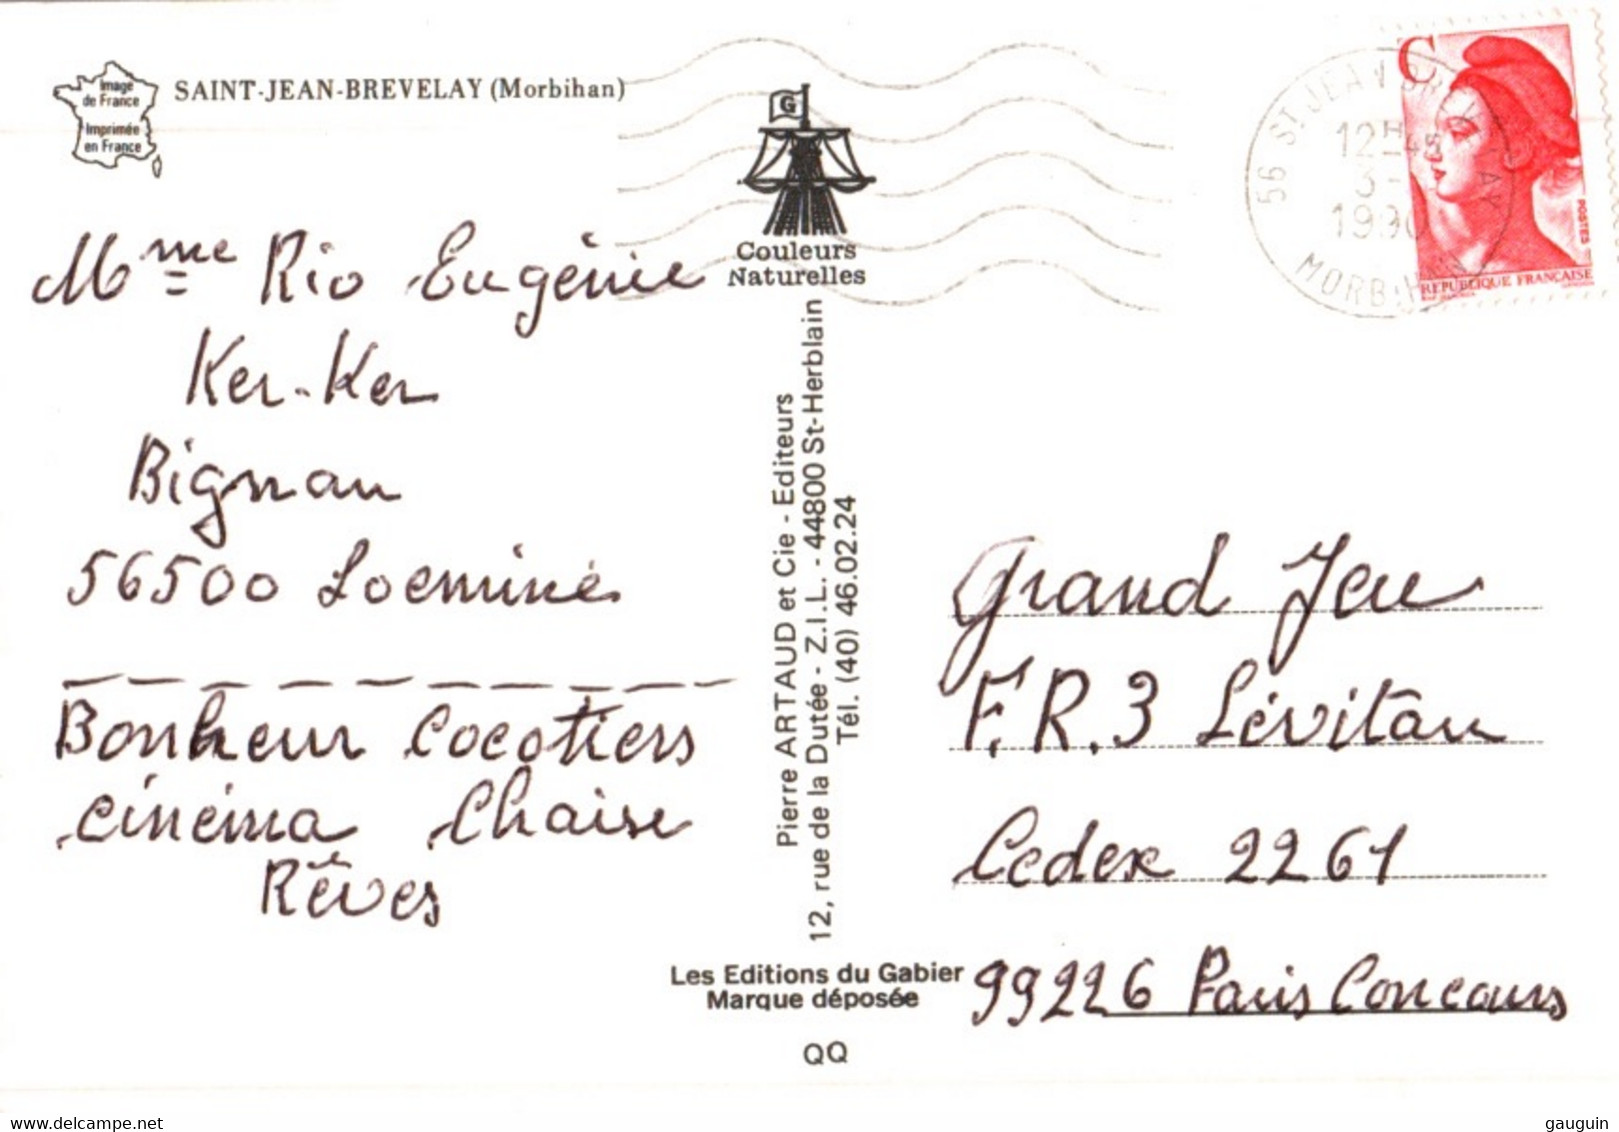 Image
de France
Imprimée
en France
SAINT-JEAN-BREVELAY (Morbihan)
G
Couleurs
Naturelles
56 ST. JEAN BREVELAY
12H45
3-
1990
MORBIHAN
C
POSTES
REPUBLIQUE FRANÇAISE
Mme Rio Eugénie
Ker-Ker
Bignan
56500 Locminé
Bonheur Cocotiers
cinéma Chaise
Rêves
Pierre ARTAUD et Cie - Editeurs
12, rue de la Dutée - Z.I.L. - 44800 St-Herblain
Tél. (40) 46.02.24
Les Editions du Gabier
Marque déposée
QQ
Grand Jeu
F.R.3 Lévitan
Cedex 2261
99226 Paris Concours
delcampe.net
gauguin